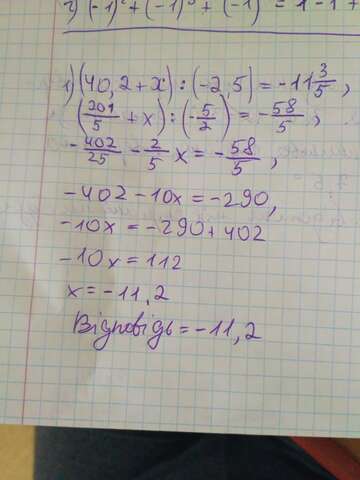 2) (-1)² + (-1)³ + (-1) = 1 - 1 +
1) (40,2 + x) : (-2,5) = -11 3/5,
(201/5 + x) : (-5/2) = -58/5,
-402/25, - 2/5 x = -58/5,
-402 - 10x = -290,
-10x = -290 + 402
-10x = 112
x = -11,2
Відповідь = -11,2